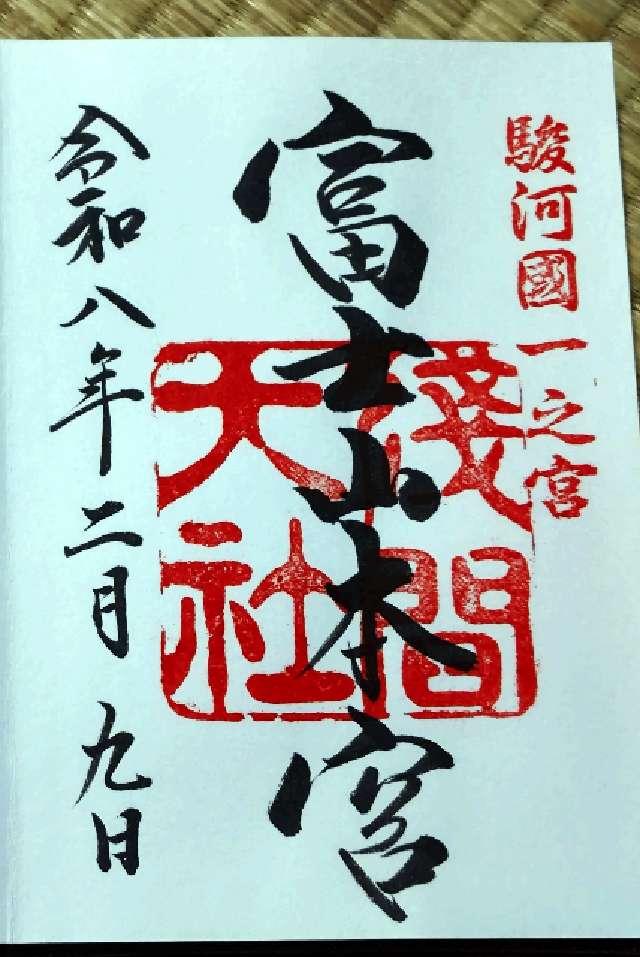 駿河國一之宮
富士山本宮
淺間大社
令和八年二月九日